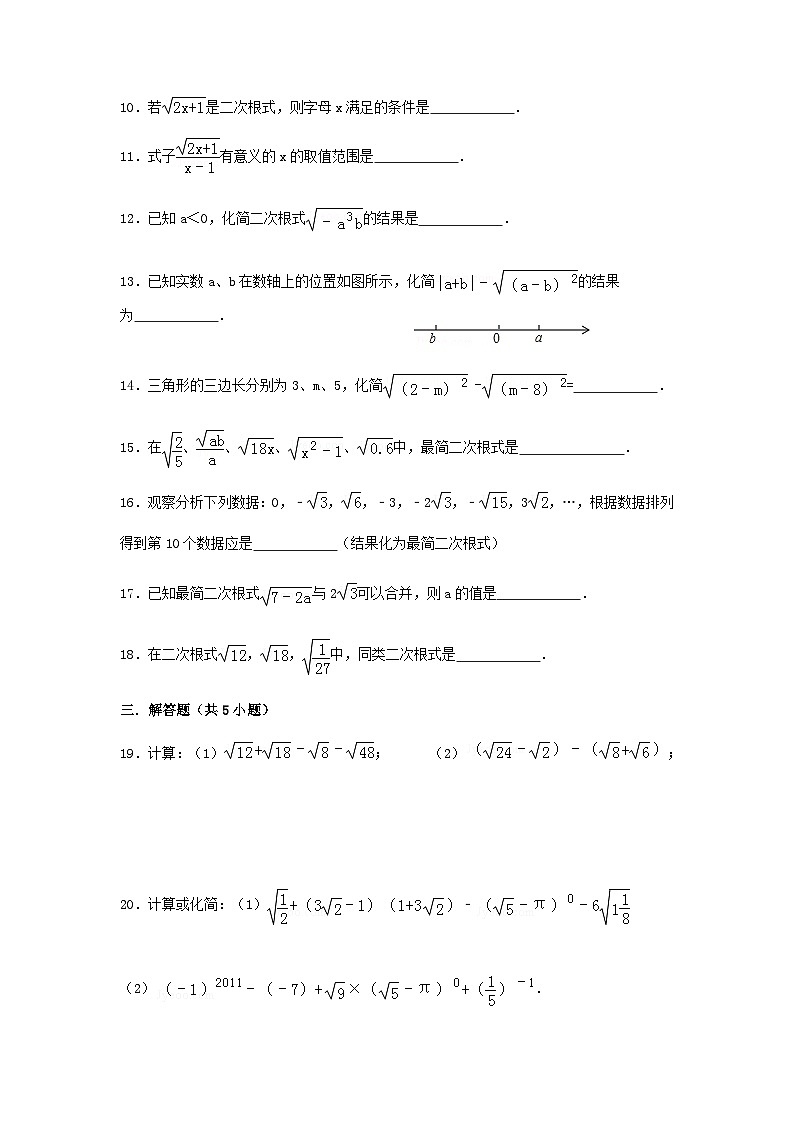 10.若√(2x+1)是二次根式,则字母x满足的条件是____________.
11.式子√(2x+1)/(x﹣1)有意义的x的取值范围是____________.
12.已知a<0,化简二次根式√(﹣a³b)的结果是____________.
13.已知实数a、b在数轴上的位置如图所示,化简|a+b|﹣√((a﹣b)²)的结果
为____________.
b 0 a
14.三角形的三边长分别为3、m、5,化简√((2﹣m)²)﹣√((m﹣8)²)=____________.
15.在√(2/5)、√(ab)/a、√(18x)、√(x²﹣1)、√(0.6)中,最简二次根式是_______________.
16.观察分析下列数据:0,﹣√3,√6,﹣3,﹣2√3,﹣√15,3√2,…,根据数据排列
得到第10个数据应是____________(结果化为最简二次根式)
17.已知最简二次根式√(7﹣2a)与2√3可以合并,则a的值是____________.
18.在二次根式√12,√18,√(1/27)中,同类二次根式是____________.
三.解答题(共5小题)
19.计算:(1)√12+√18﹣√8﹣√48; (2)(√24﹣√2)﹣(√8+√6);
20.计算或化简:(1)√(1/2)+(3√2﹣1)(1+3√2)﹣(√5﹣π)⁰﹣6√(1 1/8)
(2)(﹣1)²⁰¹¹﹣(﹣7)+√9×(√5﹣π)⁰+(1/5)⁻¹.